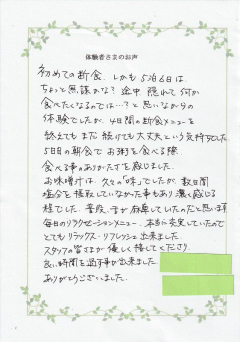 体験者さまのお声
初めての断食、しかも5泊6日は
ちょっと無謀かな？途中 隠れて何か
食べたくなるのでは…？と思いながらの
体験でしたが、4日間の断食メニューを
終えても まだ 続けても大丈夫という気持ちでした。
5日目の朝食で お粥を食べる際
食べる事のありがたさを感じました。
お味噌汁は、久々の"味"でしたが、数日間
塩分を摂取していなかった事もあり 濃く感じる
程でした。普段、舌が麻痺していたのだと思います
毎日のリラクゼーションメニュー、本当に充実していたので
とても リラックス・リフレッシュ出来ました。
スタッフの皆さまが優しく接してくださり
良い時間を過す事が出来ました。
ありがとうございました。